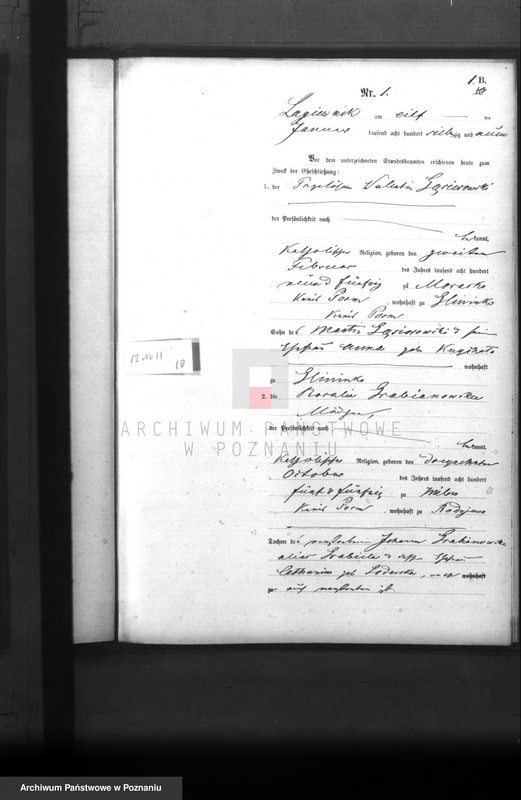 1. B.
Nr. 1.
Lagiewnik am eilf
Januar tausend acht hundert siebzig und neun
Vor dem unterzeichneten Standesbeamten erschienen heute zum
Zweck der Eheschließung:
1. der Tagelöhner Valentin Gąsiorowski
der Persönlichkeit nach
bekannt,
katholischer Religion, geboren den zweiten
Februar des Jahres tausend acht hundert
neun und fünfzig zu Morasko
Kreis Posen, wohnhaft zu Glinienko
Kreis Posen
Sohn des Martin Gąsiorowski &
Ehefrau Anna geb.
wohnhaft
zu Glinienko
2. die Rosalie Grabianowska
der Persönlichkeit nach
bekannt,
katholischer Religion, geboren den
October des Jahres tausend acht hundert
fünf & fünfzig zu
Kreis Posen, wohnhaft zu Radojewo
Tochter des verstorbenen Johann Grabianowski
alias & dessen Ehefrau
geb. wohnhaft
zu auch verstorben ist.
12 No 11
10
ARCHIWUM PAŃSTWOWE
W POZNANIU
Archiwum Państwowe w Poznaniu